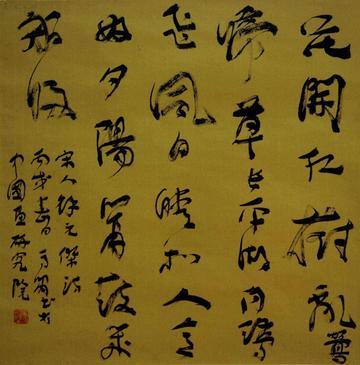 花開紅樹亂鶯
啼草長平湖白鷺
飛風日晴和人意
好夕陽簫鼓幾
船歸
宋人徐元傑詩
春日書於
中國畫研究院